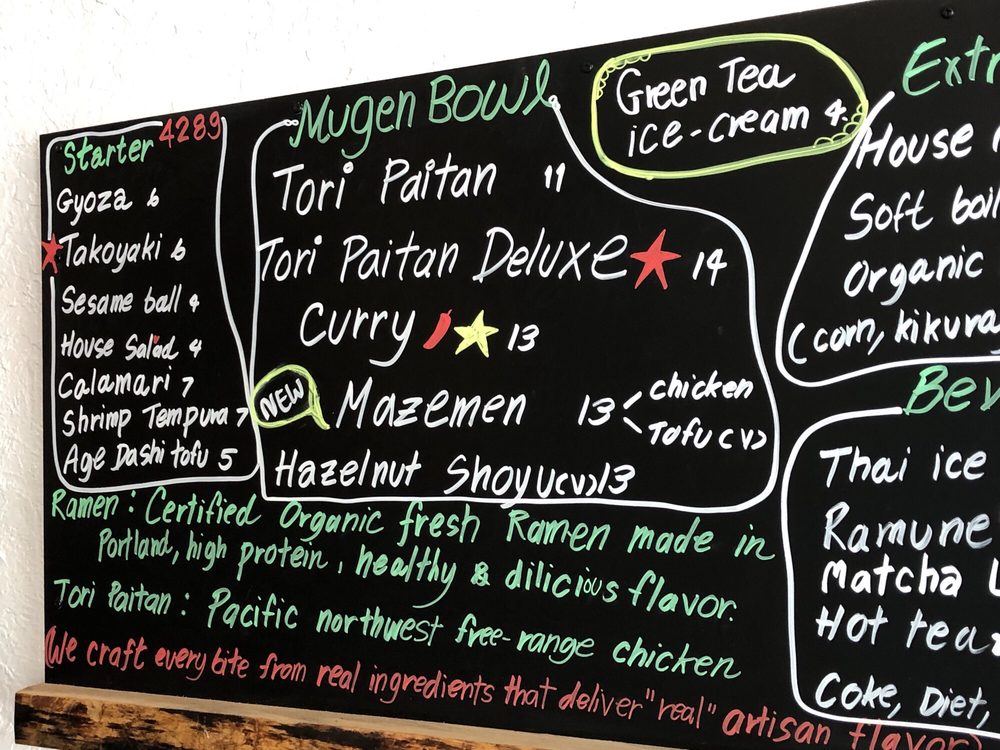 Starter 4289
Gyoza 6
Takoyaki 6
Sesame ball 4
House Salad 4
Calamari 7
Shrimp Tempura 7
Age Dashi tofu 5
Mugen Bowl
Tori Paitan 11
Tori Paitan Deluxe 14
Curry 13
NEW Mazemen 13 chicken
Tofu (V)
Hazelnut Shoyu (V) 13
Green Tea
ice-cream 4.
Extr
House
Soft boil
Organic
(corn, kikura
Bev
Thai ice
Ramune
Matcha L
Hot tea
Coke, Diet,
Ramen : Certified Organic fresh Ramen made in
Portland, high protein, healthy & dilicious flavor.
Tori Paitan : Pacific northwest free-range chicken
(We craft every bite from real ingredients that deliver "real" artisan flavor)